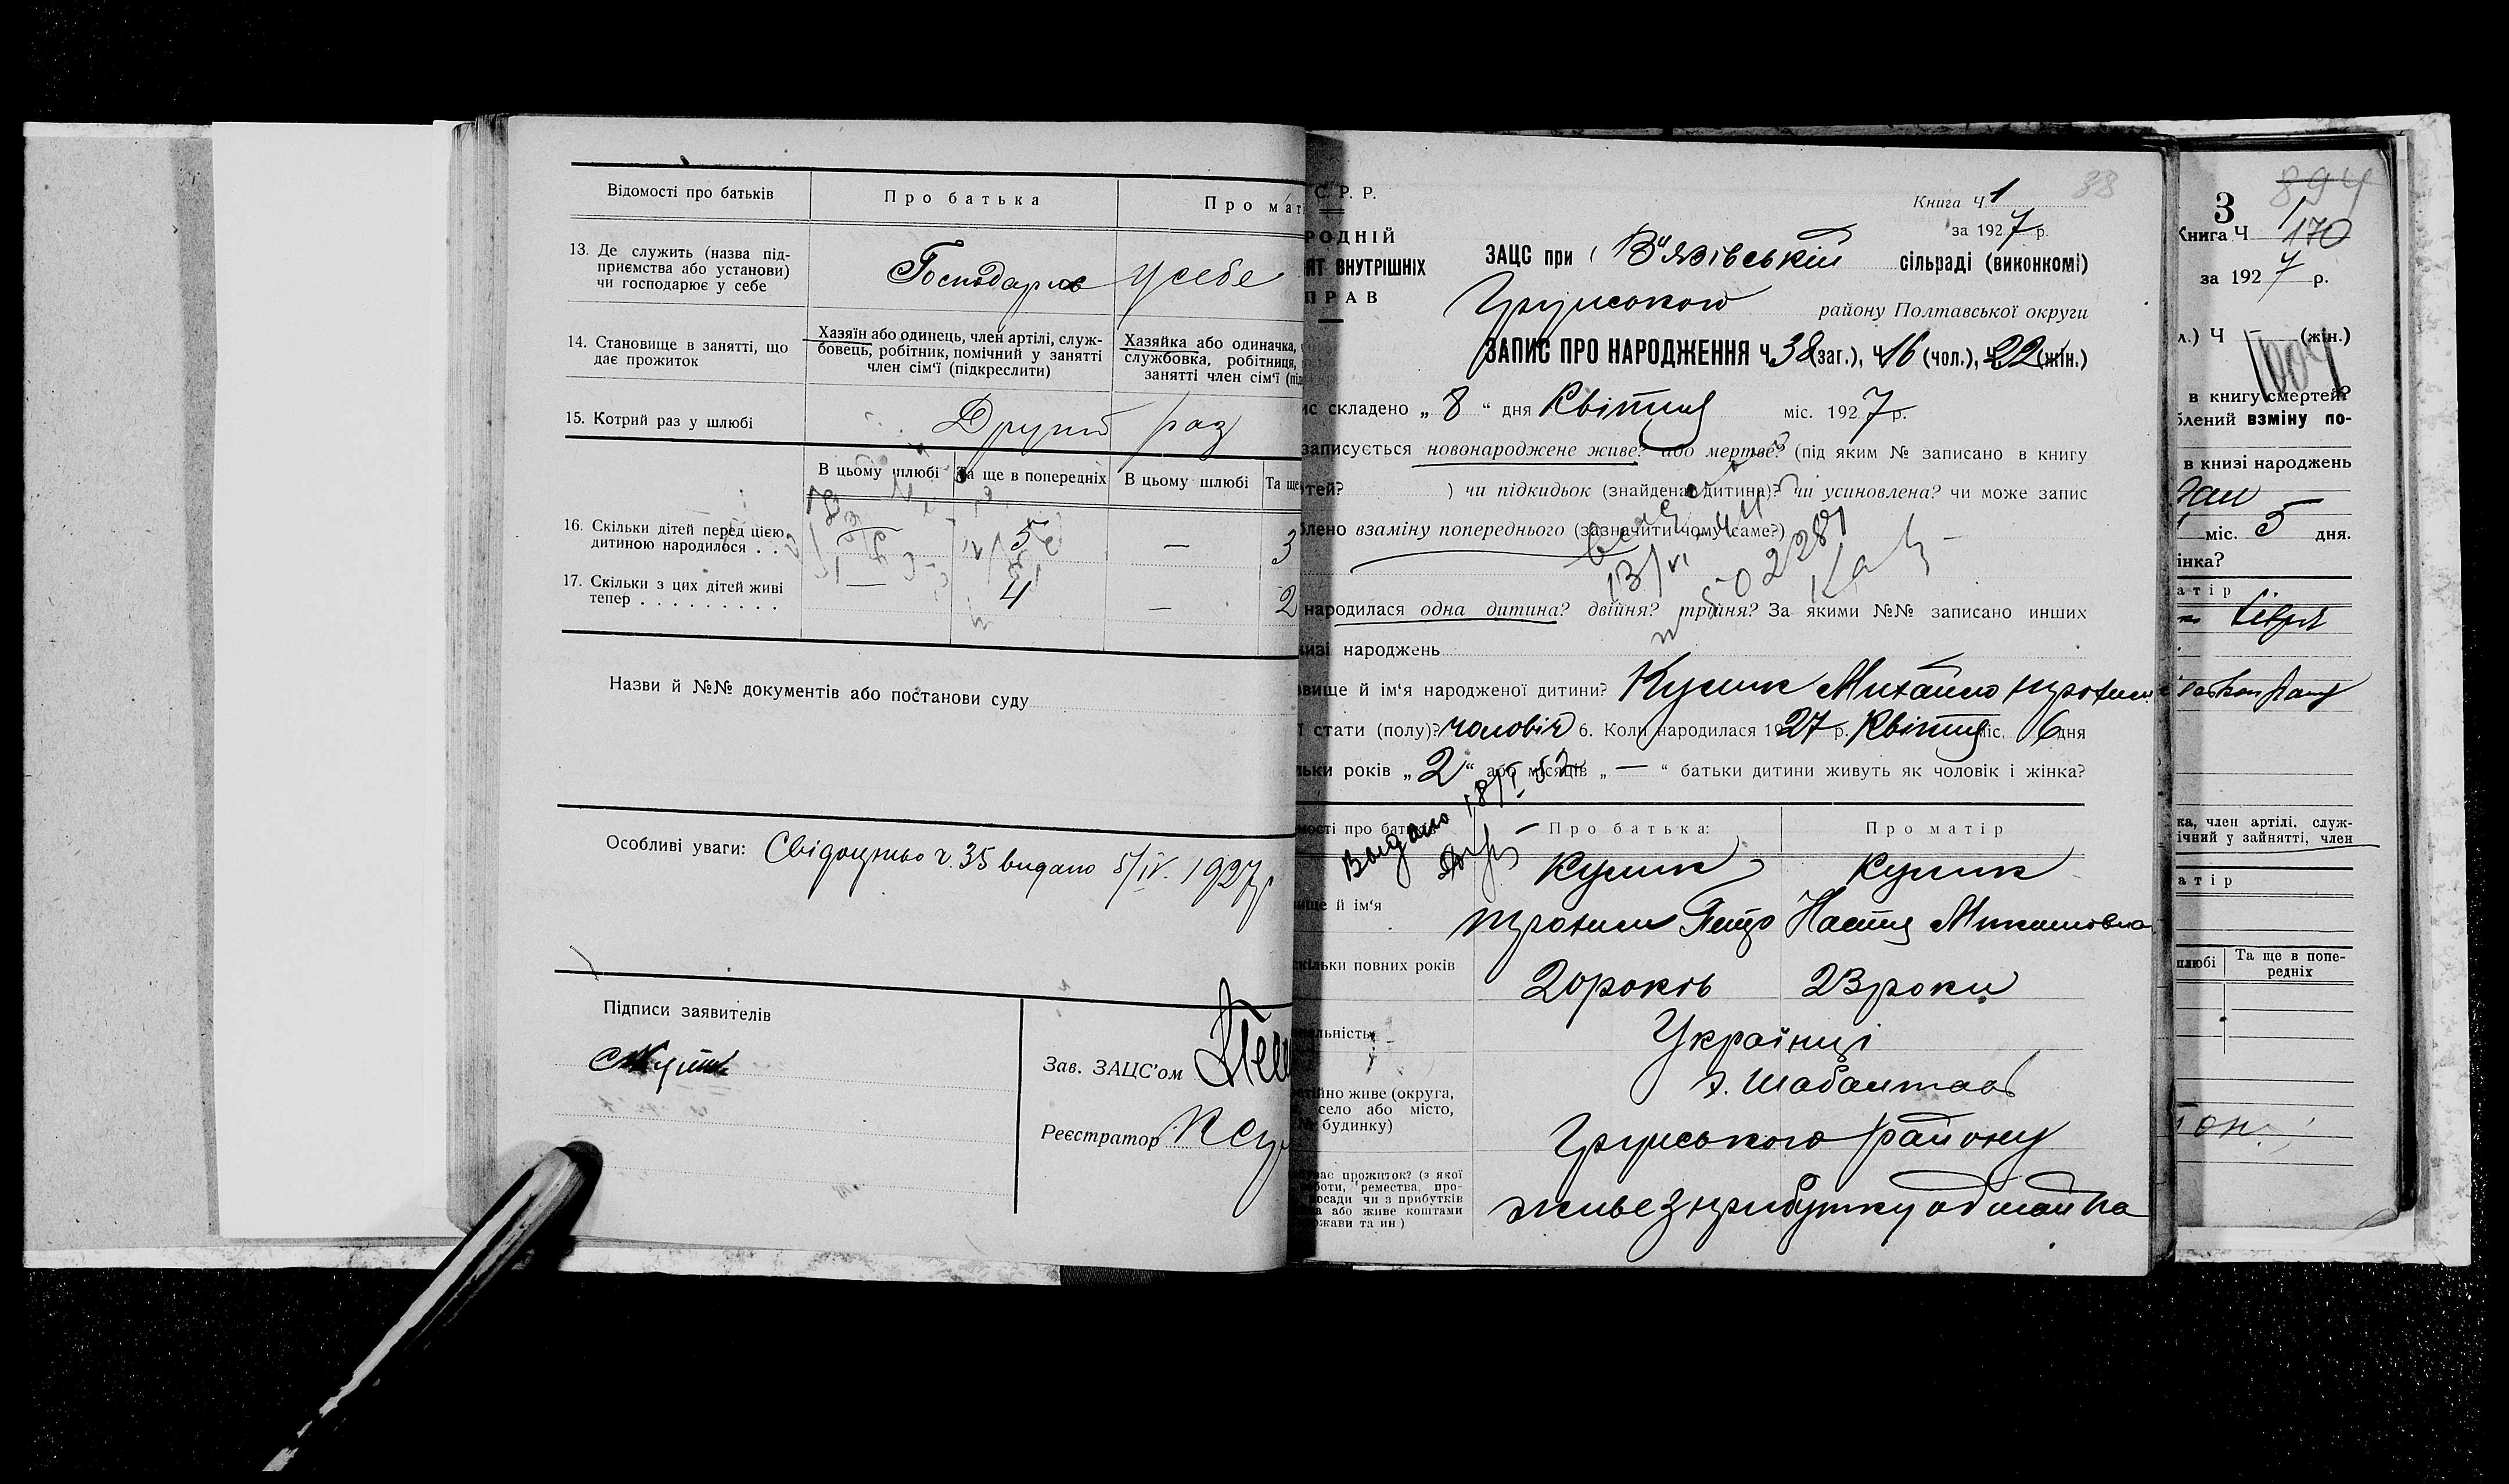 Відомості про батьків
Про батька
Про маті
13. Де служить (назва під-
приємства або установи)
чи господарює у себе
Господарює у себе
14. Становище в занятті, що
дає прожиток
Хазяїн або одинець, член артілі, служ-
бовець, робітник, помічний у занятті
член сім'ї (підкреслити)
Хазяйка або одиначка,
службовка, робітниця,
занятті член сім'ї (під
15. Котрий раз у шлюбі
Другий раз
В цьому шлюбі
Та ще в попередніх
В цьому шлюбі
Та ще
16. Скільки дітей перед цією
дитиною народилося . .
5
—
3
17. Скільки з цих дітей живі
тепер . . . . . . . . .
4
—
2
Назви й №№ документів або постанови суду
Особливі уваги: Свідоцтво ч. 35 видано 5/IV. 1927 р
Підписи заявителів
Зав. ЗАЦС'ом
Реєстратор
С. Р. Р.
РОДНІЙ
ЯТ ВНУТРІШНІХ
ПРАВ
38
Книга Ч. 1
за 1927 р.
ЗАЦС при В'язівській сільраді (виконкомі)
Грунського району Полтавської округи
ЗАПИС ПРО НАРОДЖЕННЯ Ч 38 (заг.), Ч 16 (чол.), Ч 22 (жін.)
ис складено „ 8 " дня Квітня міс. 1927 р.
записується новонароджене живе? або мертве? (під яким № записано в книгу
ртей? ) чи підкидьок (знайдена дитина)? чи усиновлена? чи може запис
блено взаміну попереднього (зазначити чому саме?)
13/VI
народилася одна дитина? двійня? трійня? За якими №№ записано инших
изі народжень
вище й ім'я народженої дитини? Кулик Михайло
ї стати (полу)? чоловіч 6. Коли народилася 1927 р. Квітня міс. 6 дня
льки років „ 2 " або місяців „ — " батьки дитини живуть як чоловік і жінка?
Видано 18/I 52
мості про бать
Про батька:
Про матір
вище й ім'я
Кулик
Кулик
Петро
Настя
скільки повних років
20 років
23 роки
альність
Українці
тійно живе (округа,
село або місто,
будинку)
Грунського району
уває прожиток? (з якої
боти, ремества, про-
посади чи з прибутків
а або живе коштами
ржави та ин )
живе з прибутку од майна
894
З
Книга Ч 1
170
за 1927 р.
л.) Ч — (жін.)
в книгу смертей?
блений взміну по-
в книзі народжень
міс. 5 дня.
інка?
атір
ка, член артілі, служ-
ічний у зайнятті, член
атір
шлюбі
Та ще в попе-
редніх